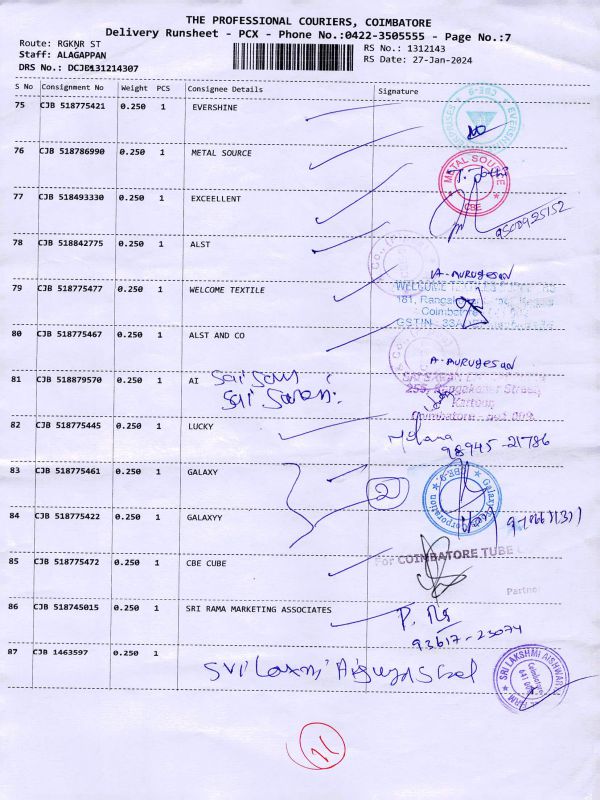 THE PROFESSIONAL COURIERS, COIMBATORE
Delivery Runsheet - PCX - Phone No.:0422-3505555 - Page No.:7
Route: RGKNR ST
RS No.: 1312143
Staff: ALAGAPPAN
RS Date: 27-Jan-2024
DRS No.: DCJB131214307
S No Consignment No Weight PCS Consignee Details Signature
75 CJB 518775421 0.250 1 EVERSHINE
CBE-9
76 CJB 518786990 0.250 1 METAL SOURCE
METAL SOURCE
CBE
77 CJB 518493330 0.250 1 EXCEELLENT
78 CJB 518842775 0.250 1 ALST
A-AURUGESAN
79 CJB 518775477 0.250 1 WELCOME TEXTILE
WELCOME
Coimbatore
80 CJB 518775467 0.250 1 ALST AND CO
A-AURUGESAN
81 CJB 518879570 0.250 1 AI
Sai Saran
255, Rangakonar Street,
Kattoor,
Coimbatore
82 CJB 518775445 0.250 1 LUCKY
98945-21786
83 CJB 518775461 0.250 1 GALAXY
2
Galaxy Corporation
CBE-9
84 CJB 518775422 0.250 1 GALAXYY
85 CJB 518775472 0.250 1 CBE CUBE
For COIMBATORE TUBE
Partner
86 CJB 518745015 0.250 1 SRI RAMA MARKETING ASSOCIATES
93617-23074
87 CJB 1463597 0.250 1
Sri Laxmi
SRI LAKSHMI AISHWARYA
Coimbatore
11